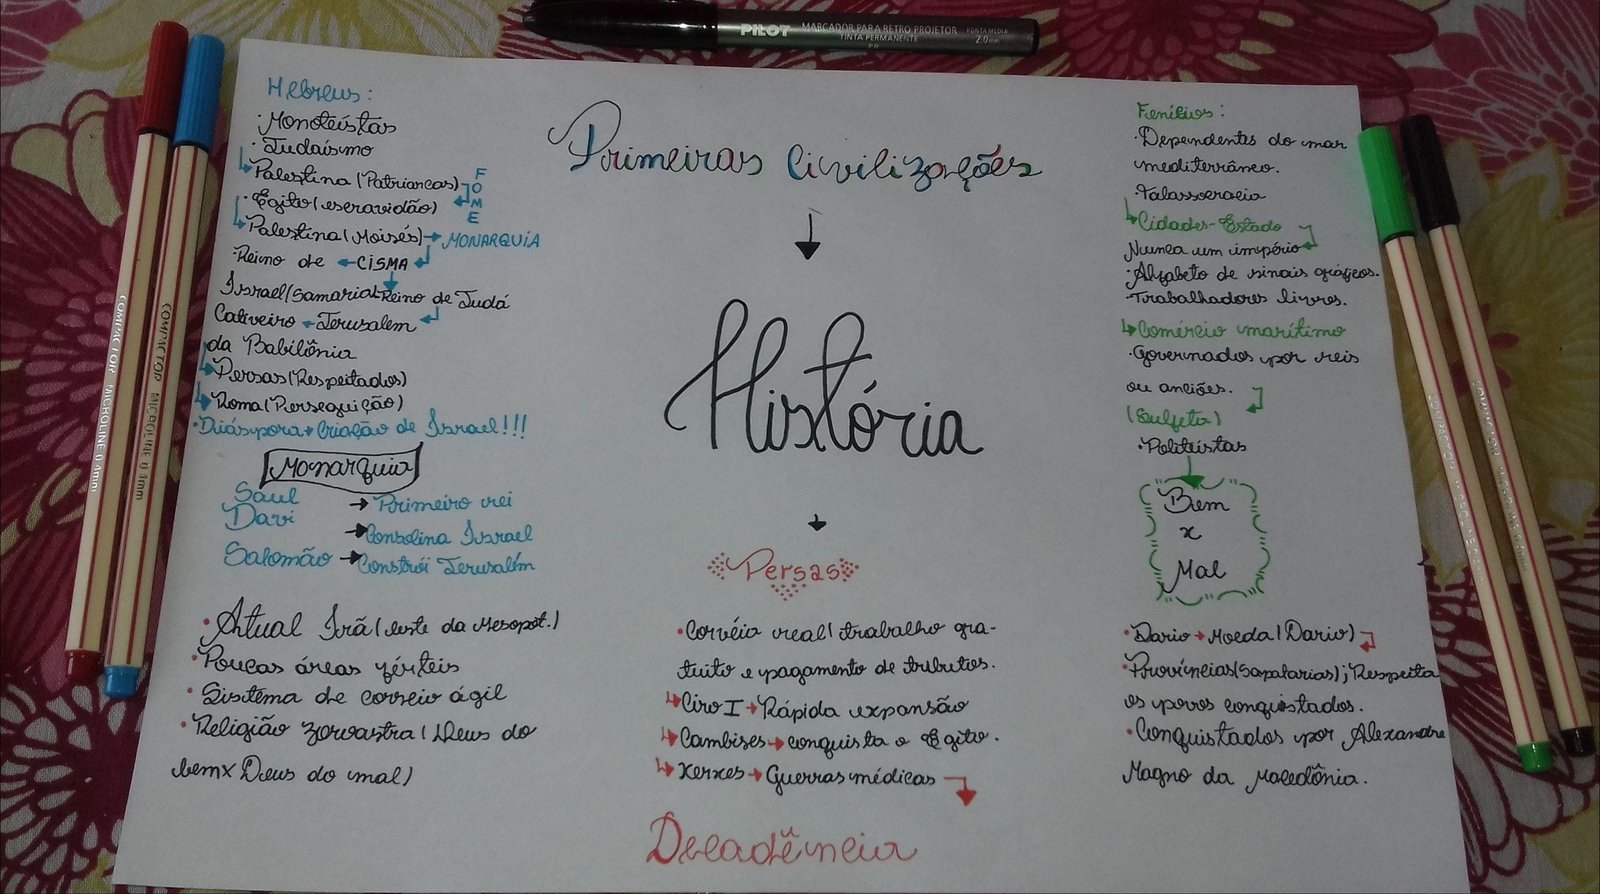 PILOT MARCADOR PARA RETRO PROJETOR PONTA MÉDIA
TINTA PERMANENTE 2.0mm
Primeiras Civilizações
História
Hebreus:
·Monoteístas
·Judaísmo
Palestina (Patriarcas)
FOME
·Egito (escravidão)
Palestina (Moisés) → MONARQUIA
·Reino de ← CISMA
Israel (Samaria) Reino de Judá
Cativeiro ← Jerusalem
da Babilônia
Persas (Respeitados)
Roma (Perseguição)
·Diáspora → Criação de Israel!!!
Monarquia
Saul → Primeiro rei
Davi → Consolina Israel
Salomão → Constrói Jerusalém
Fenícios:
·Dependentes do mar
mediterrâneo.
·Talassocracia
Cidades-Estado
Nunca um império
·Alfabeto de sinais gráficos.
·Trabalhadores livres.
Comércio marítimo
·Governados por reis
ou anciões.
(Sulfeta)
·Politeístas
Bem
x
Mal
Persas
·Atual Irã (leste da Mesopot.)
·Poucas áreas férteis
·Sistema de correio ágil
·Religião zoroastra (Deus do
bem x Deus do mal)
·Corvéia real (trabalho gra-
tuito e pagamento de tributos.
Ciro I → Rápida expansão
Cambises → conquista o Egito.
Xerxes → Guerras médicas
Decadência
·Dario → Moeda (Dario)
·Províncias (Sapatarias); Respeita
os povos conquistados.
·Conquistados por Alexandre
Magno da Macedônia.
COMPACTOR MICROLINE 0.4mm
COMPACTOR MICROLINE 0.4mm